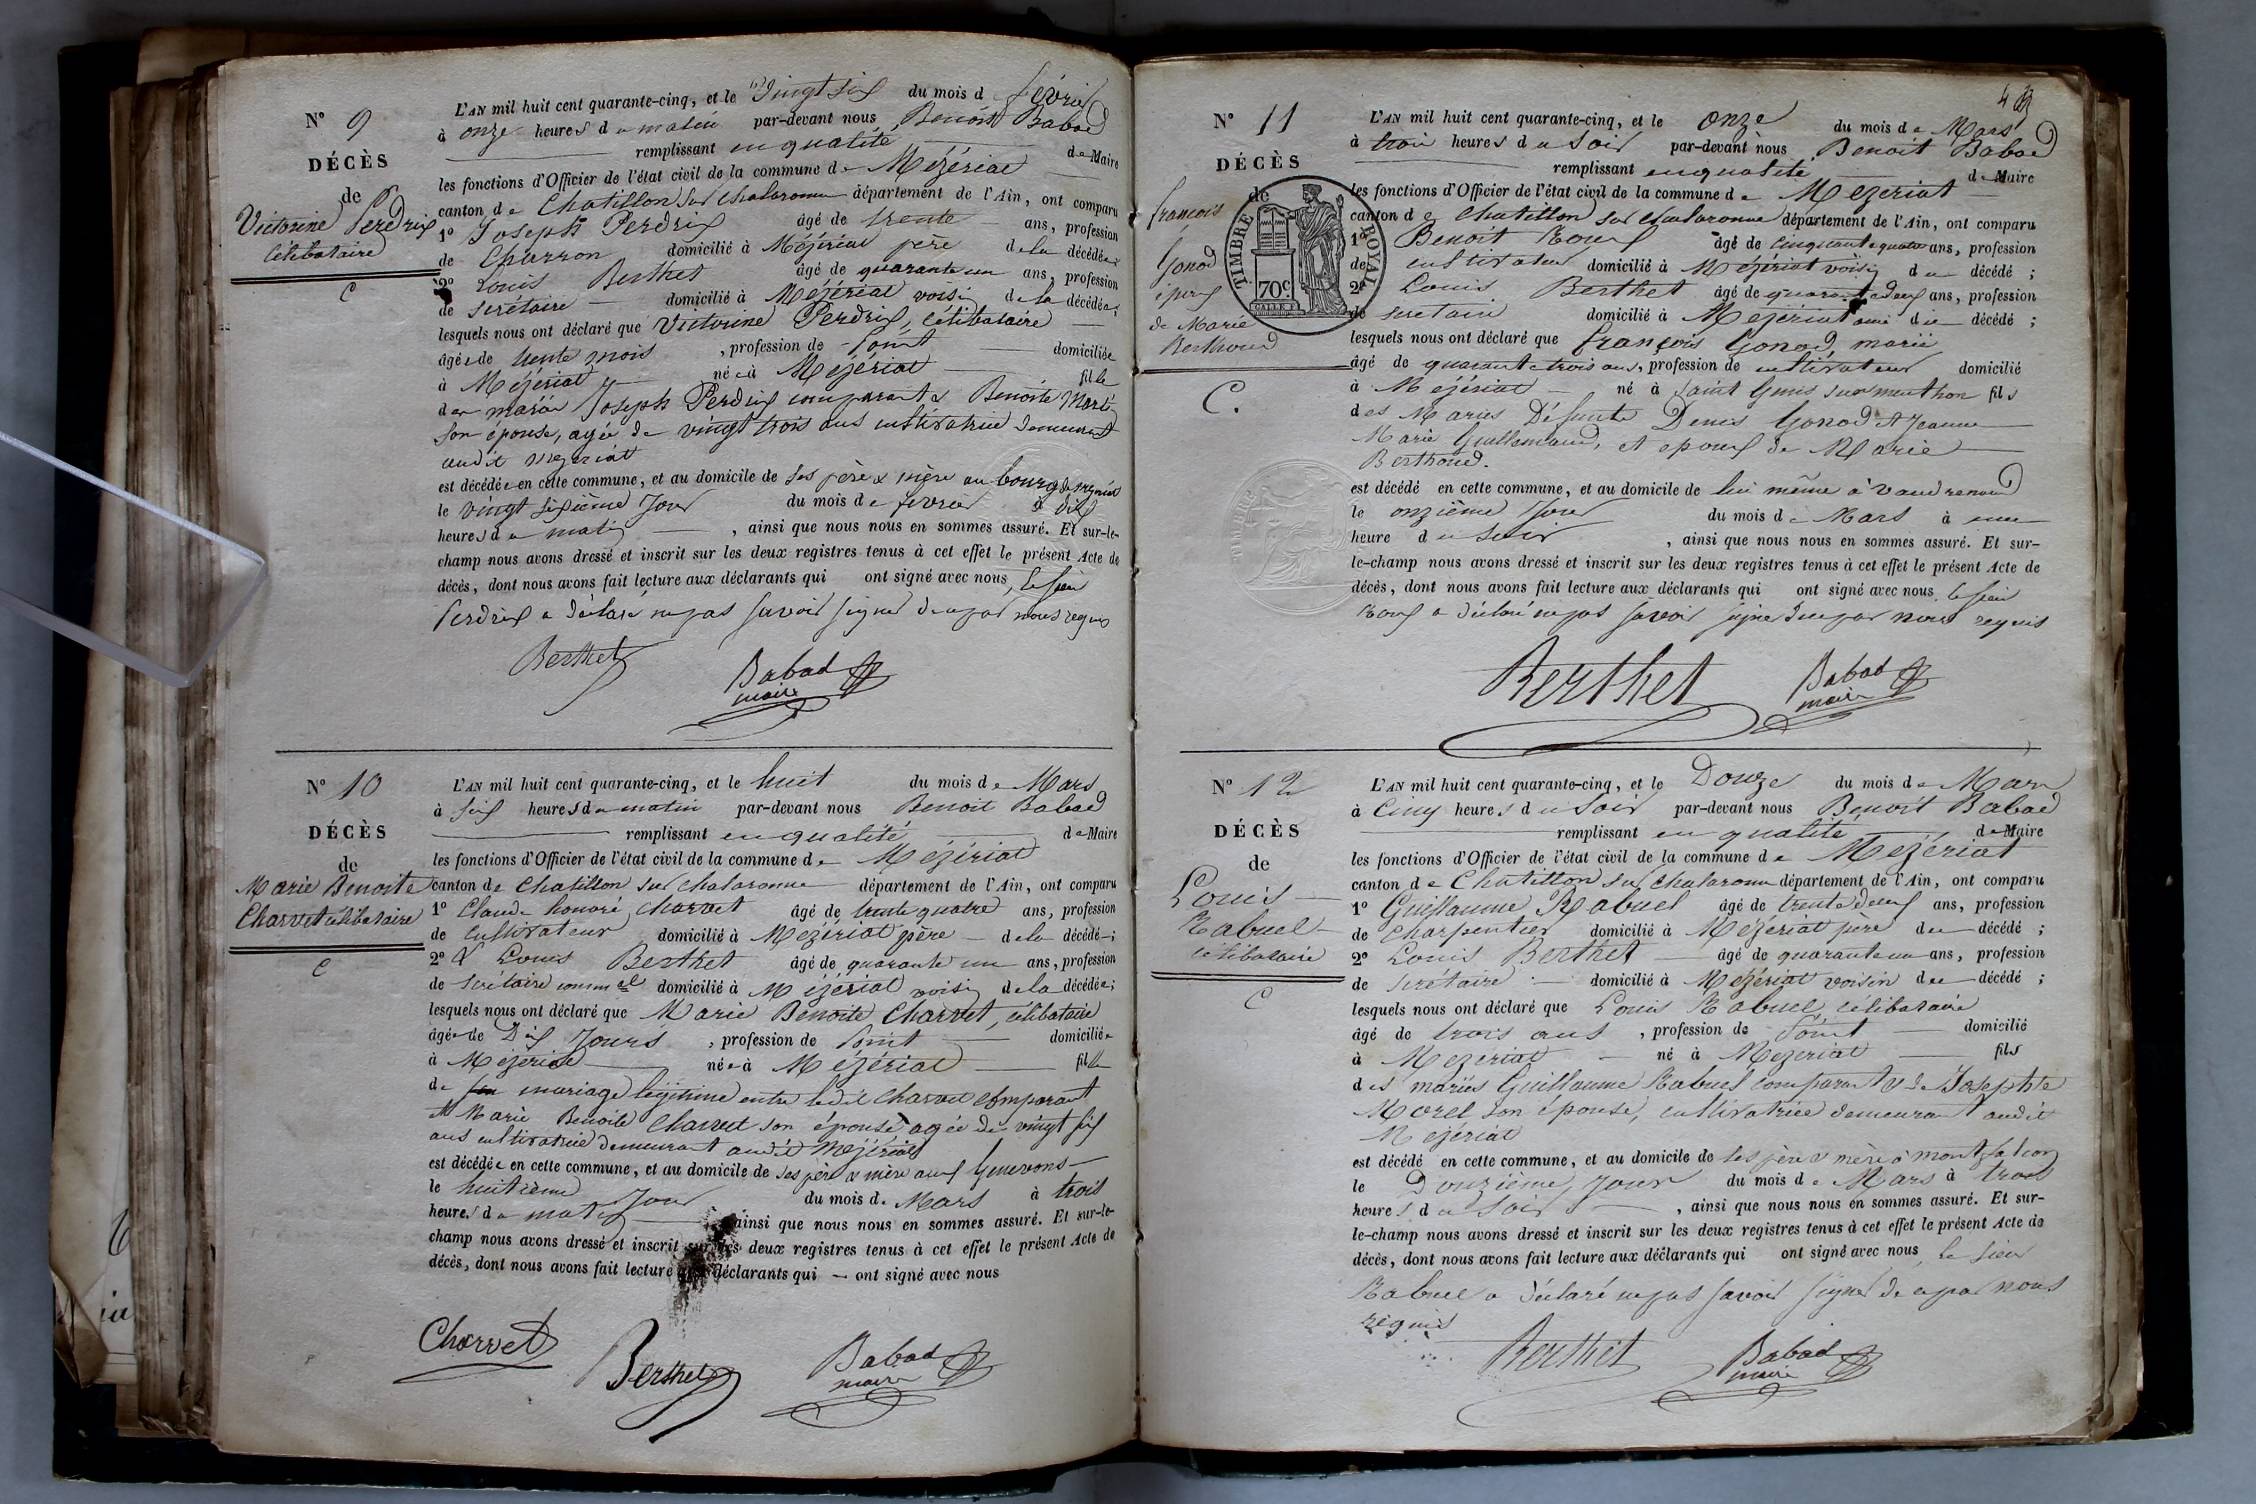 N° 9
DÉCÈS
de
Victorine Perdrix
célibataire
C
L'AN mil huit cent quarante-cinq, et le Vingt six du mois d février
à onze heures du matin par-devant nous Benoit Babad
remplissant en qualité de Maire
les fonctions d'Officier de l'état civil de la commune de Mézériat
canton de Chatillon sur chalaronne département de l'Ain, ont comparu
1° Joseph Perdrix âgé de trente ans, profession
de Charron domicilié à Mézériat père de la décédée;
2° Louis Berthet âgé de quarante un ans, profession
de Secrétaire domicilié à Mézériat voisin de la décédée;
lesquels nous ont déclaré que Victorine Perdrix, célibataire
âgée de trente mois, profession de point domiciliée
à Mézériat née à Mézériat fille
Joseph Perdrix comparant & Benoite
son épouse, agée de vingt trois ans cultivatrice demeurant
audit mézériat
est décédée en cette commune, et au domicile de ses père & mère au bourg de
le vingt sixième Jour du mois de fevrier à dix
heures du matin, ainsi que nous nous en sommes assuré. Et sur-le-
champ nous avons dressé et inscrit sur les deux registres tenus à cet effet le présent Acte de
décès, dont nous avons fait lecture aux déclarants qui ont signé avec nous, le sieur
Perdrix a déclaré ne pas savoir signer de ce par nous requis
Berthet
Babad
maire
N° 10
DÉCÈS
de
Marie Benoite
Charvet célibataire
C
L'AN mil huit cent quarante-cinq, et le huit du mois de Mars
à six heures du matin par-devant nous Benoit Babad
remplissant en qualité de Maire
les fonctions d'Officier de l'état civil de la commune de Mézériat
canton de Chatillon sur chalaronne département de l'Ain, ont comparu
1° Claude honoré charvet âgé de trente quatre ans, profession
de Cultivateur domicilié à Mézériat père de la décédée;
2° Louis Berthet âgé de quarante un ans, profession
de Secrétaire comm al domicilié à Mézériat voisin de la décédée;
lesquels nous ont déclaré que Marie Benoite Charvet, célibataire
âgée de Dix Jours, profession de Point domiciliée
à Mézériat née à Mézériat fille
de mariage légitime entre ledit charvet comparant
& Marie Benoite Charvet son épouse agée de vingt six
ans cultivatrice demeurant audit Mézériat
est décédée en cette commune, et au domicile de ses père & mère aux Genevons
le huitième Jour du mois de Mars à trois
heures du matin ainsi que nous nous en sommes assuré. Et sur-le-
champ nous avons dressé et inscrit sur les deux registres tenus à cet effet le présent Acte de
décès, dont nous avons fait lecture aux déclarants qui ont signé avec nous
Charvet
Berthet
Babad
maire
N° 11
DÉCÈS
de
françois
Gonod
époux
de Marie
Berthoud
C.
TIMBRE ROYAL
70c
TIMBRE
L'AN mil huit cent quarante-cinq, et le onze du mois de Mars
à trois heures du Soir par-devant nous Benoit Babad
remplissant en qualité de Maire
les fonctions d'Officier de l'état civil de la commune de Mézériat
canton de Chatillon sur chalaronne département de l'Ain, ont comparu
1° Benoit Roux âgé de cinquante quatre ans, profession
de cultivateur domicilié à Mézériat voisin du décédé;
2° Louis Berthet âgé de quarante deux ans, profession
de secretaire domicilié à Mézériat ami du décédé;
lesquels nous ont déclaré que françois Gonod marié
âgé de quarante trois ans, profession de cultivateur domicilié
à Mézériat né à Saint Genis sur menthon fils
des Maries Défunts Denis Gonod & Jeanne
Marie Guillemaud, et epoux de Marie
Berthoud.
est décédé en cette commune, et au domicile de lui même à vaudrenoud
le onzième Jour du mois de Mars à une
heure du soir, ainsi que nous nous en sommes assuré. Et sur-
le-champ nous avons dressé et inscrit sur les deux registres tenus à cet effet le présent Acte de
décès, dont nous avons fait lecture aux déclarants qui ont signé avec nous le sieur
Roux a déclaré ne pas savoir signer de ce par nous requis
Berthet
Babad
maire
N° 12
DÉCÈS
de
Louis
Rabuel
célibataire
C
L'AN mil huit cent quarante-cinq, et le Douze du mois de Mars
à Cinq heures du Soir par-devant nous Benoit Babad
remplissant en qualité de Maire
les fonctions d'Officier de l'état civil de la commune de Mézériat
canton de Chatillon sur chalaronne département de l'Ain, ont comparu
1° Guillaume Rabuel âgé de trente deux ans, profession
de Charpentier domicilié à Mézériat père du décédé;
2° Louis Berthet âgé de quarante un ans, profession
de Secrétaire domicilié à Mézériat voisin du décédé;
lesquels nous ont déclaré que Louis Rabuel célibataire
âgé de trois ans, profession de Point domicilié
à Mezeriat né à Mezeriat fils
des mariés Guillaume Rabuel comparant & de Josephte
Morel son épouse, cultivatrice demeurant audit
Mézériat
est décédé en cette commune, et au domicile de ses père & mère à montfalcon
le Douzième Jour du mois de Mars à trois
heures du Soir, ainsi que nous nous en sommes assuré. Et sur-
le-champ nous avons dressé et inscrit sur les deux registres tenus à cet effet le présent Acte de
décès, dont nous avons fait lecture aux déclarants qui ont signé avec nous, le sieur
Rabuel a déclaré ne pas savoir signer de ce par nous
requis
Berthet
Babad
maire